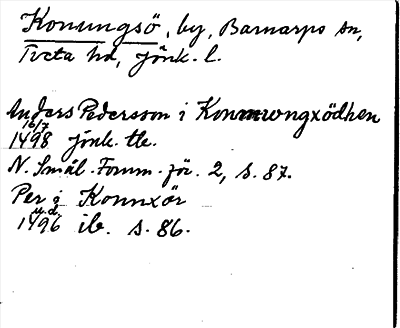 Konungsö, by, Barnarps sn,
Tveta hd, Jönk. l.
Anders Pedersson i Konnungxödhen
16/7 1498 Jönk. tb.
N. Smål. Fornm. för. 2, s. 87.
Per i Konnxör
u.d. 1496 ib. s. 86.